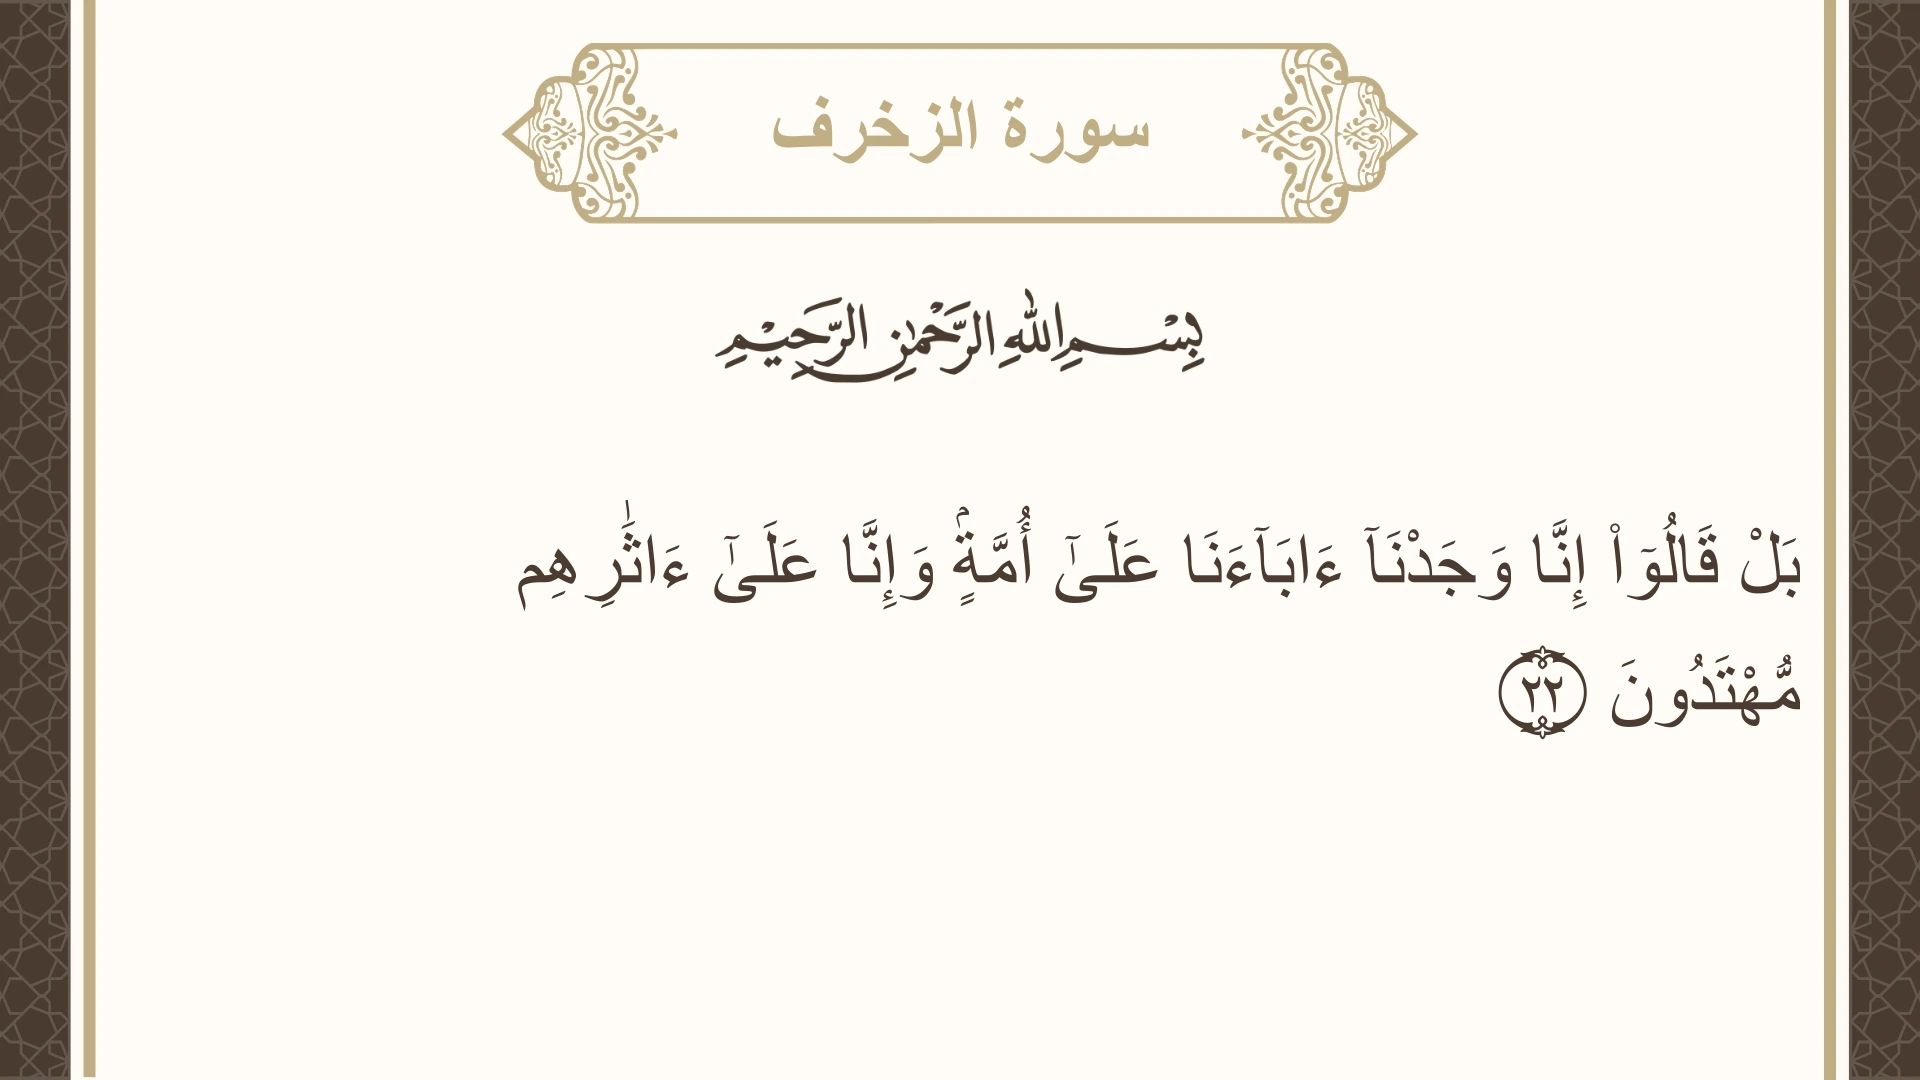 سورة الزخرف
بِسْمِ اللهِ الرَّحْمٰنِ الرَّحِيْمِ
بَلْ قَالُوٓا۟ إِنَّا وَجَدْنَآ ءَابَآءَنَا عَلَىٰٓ أُمَّةٍۢ وَإِنَّا عَلَىٰٓ ءَاثَـٰرِهِم
مُّهْتَدُونَ ٢٢